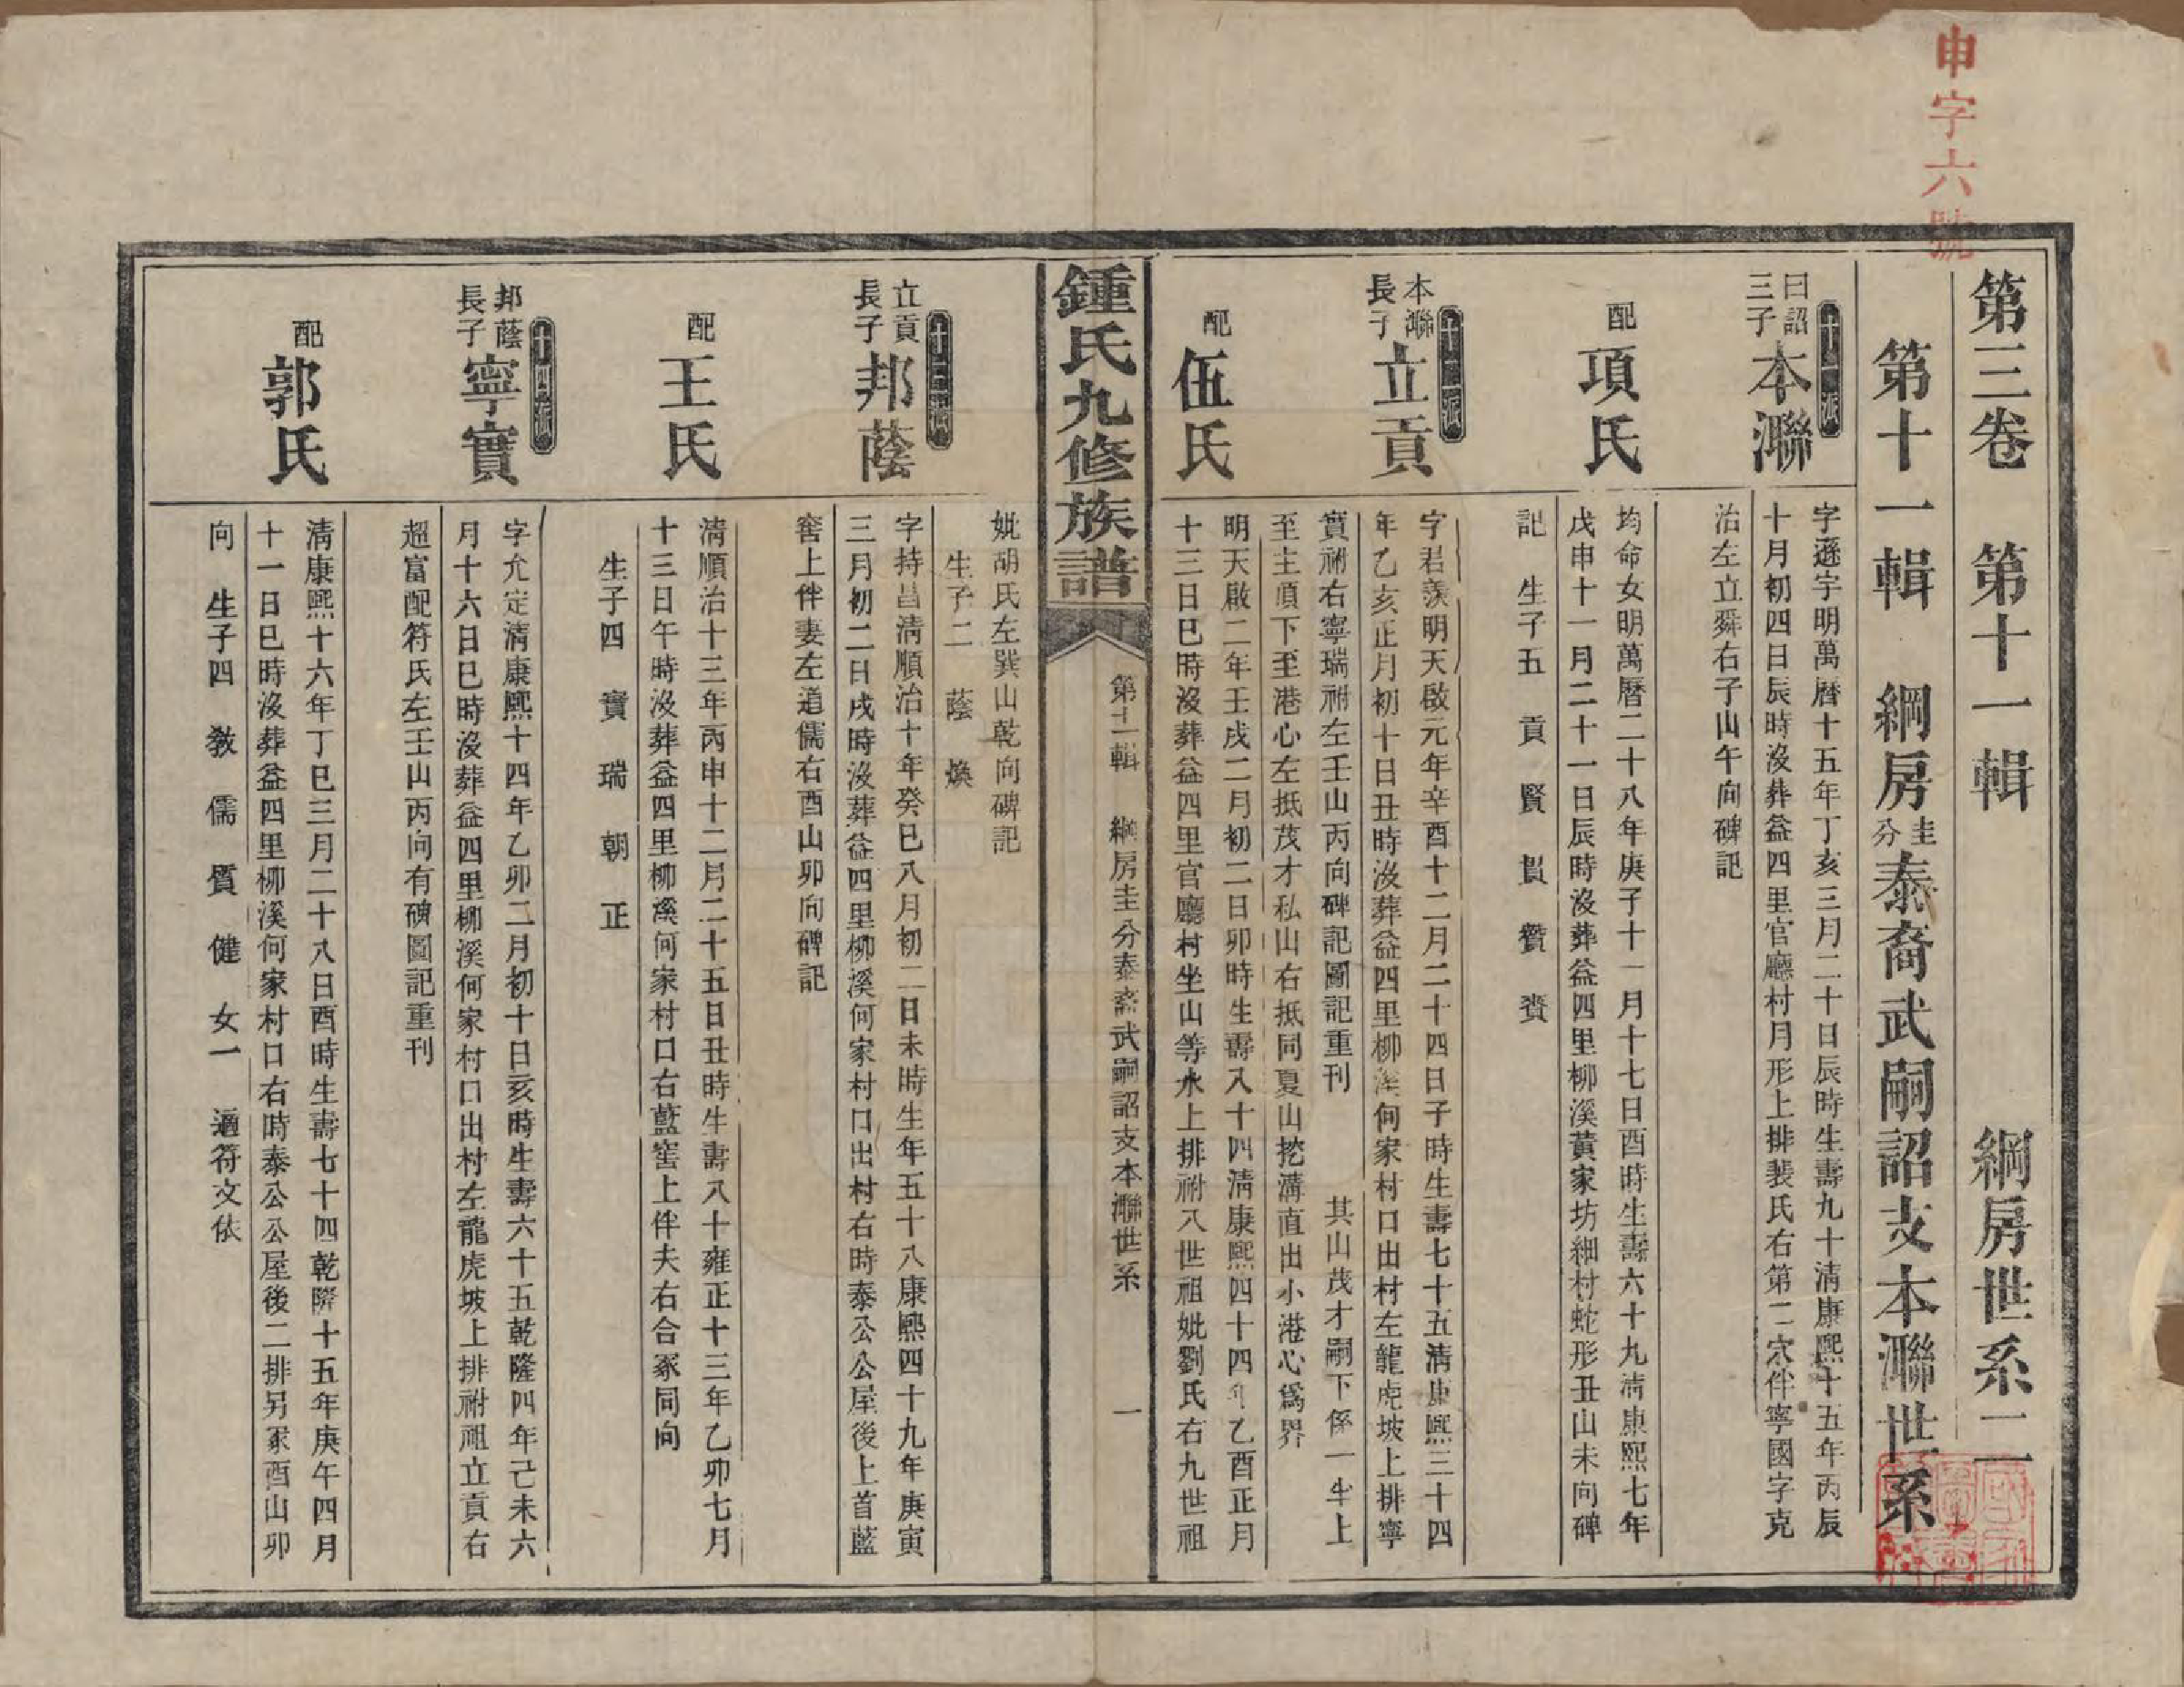 申字六號
第三卷 第十一輯 綱房世系二
第十一輯 綱房圭分泰裔武嗣詔支本聯世系
十一派
曰詔三子本聯
字遜宇明萬曆十五年丁亥三月二十日辰時生壽九十清康熙十五年丙辰
十月初四日辰時沒葬益四里官廳村月形上排裴氏右第二穴伴寧國字克
治左立舜右子山午向碑記
配項氏
均命女明萬曆二十八年庚子十一月十七日酉時生壽六十九清康熙七年
戊申十一月二十一日辰時沒葬益四里柳溪黃家坊細村蛇形丑山未向碑
記 生子五 貢 賢 貫 贊 賚
十二派
本聯長子立貢
字君羨明天啟元年辛酉十二月二十四日子時生壽七十五清康熙三十四
年乙亥正月初十日丑時沒葬益四里柳溪何家村口出村左龍虎坡上排寧
實祔右寧瑞祔左壬山丙向碑記圖記重刊 其山茂才嗣下係一半上
至主頂下至港心左抵茂才私山右抵同夏山挖溝直出小港心爲界
配伍氏
明天啟二年壬戌二月初二日卯時生壽八十四清康熙四十四年乙酉正月
十三日巳時沒葬益四里官廳村坐山等水上排祔八世祖妣劉氏右九世祖
鍾氏九修族譜
第十一輯 綱房圭分泰裔武嗣詔支本聯世系 一
妣胡氏左巽山乾向碑記
生子二 蔭 煥
十三派
立貢長子邦蔭
字持昌清順治十年癸巳八月初二日未時生年五十八康熙四十九年庚寅
三月初二日戌時沒葬益四里柳溪何家村口出村右時泰公公屋後上首藍
窖上伴妻左道儒右酉山卯向碑記
配王氏
清順治十三年丙申十二月二十五日丑時生壽八十雍正十三年乙卯七月
十三日午時沒葬益四里柳溪何家村口右藍窖上伴夫右合冢同向
生子四 實 瑞 朝 正
十四派
邦蔭長子寧實
字允定清康熙十四年乙卯二月初十日亥時生壽六十五乾隆四年己未六
月十六日巳時沒葬益四里柳溪何家村口出村左龍虎坡上排祔祖立貢右
超富配符氏左壬山丙向有碑圖記重刊
配郭氏
清康熙十六年丁巳三月二十八日酉時生壽七十四乾隆十五年庚午四月
十一日巳時沒葬益四里柳溪何家村口右時泰公公屋後二排另冢酉山卯
向 生子四 敎 儒 質 健 女一 適符文依